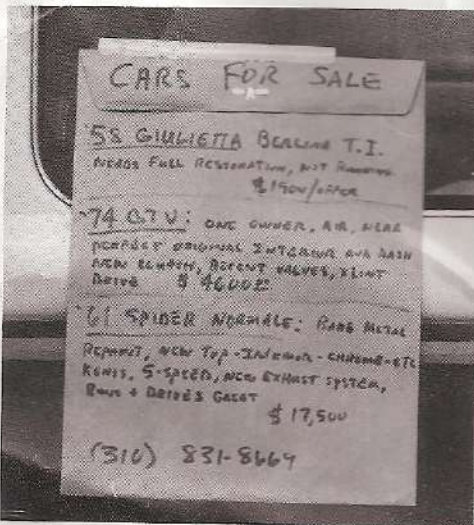 CARS FOR SALE
'58 GIULIETTA BERLINA T.I.
NEEDS FULL RESTORATION, NOT RUNNING
$1500/OFFER
'74 GTV: ONE OWNER, AIR, NEAR
PERFECT ORIGINAL INTERIOR AND DASH
NEW CLUTCH, RECENT VALVES, XLINT
DRIVE $4600
'61 SPIDER NORMALE: BARE METAL
REPAINT, NEW TOP-INTERIOR-CHROME-ETC
KONIS, 5-SPEED, NEW EXHAUST SYSTEM,
RUNS + DRIVES GREAT
$17,500
(310) 831-8664